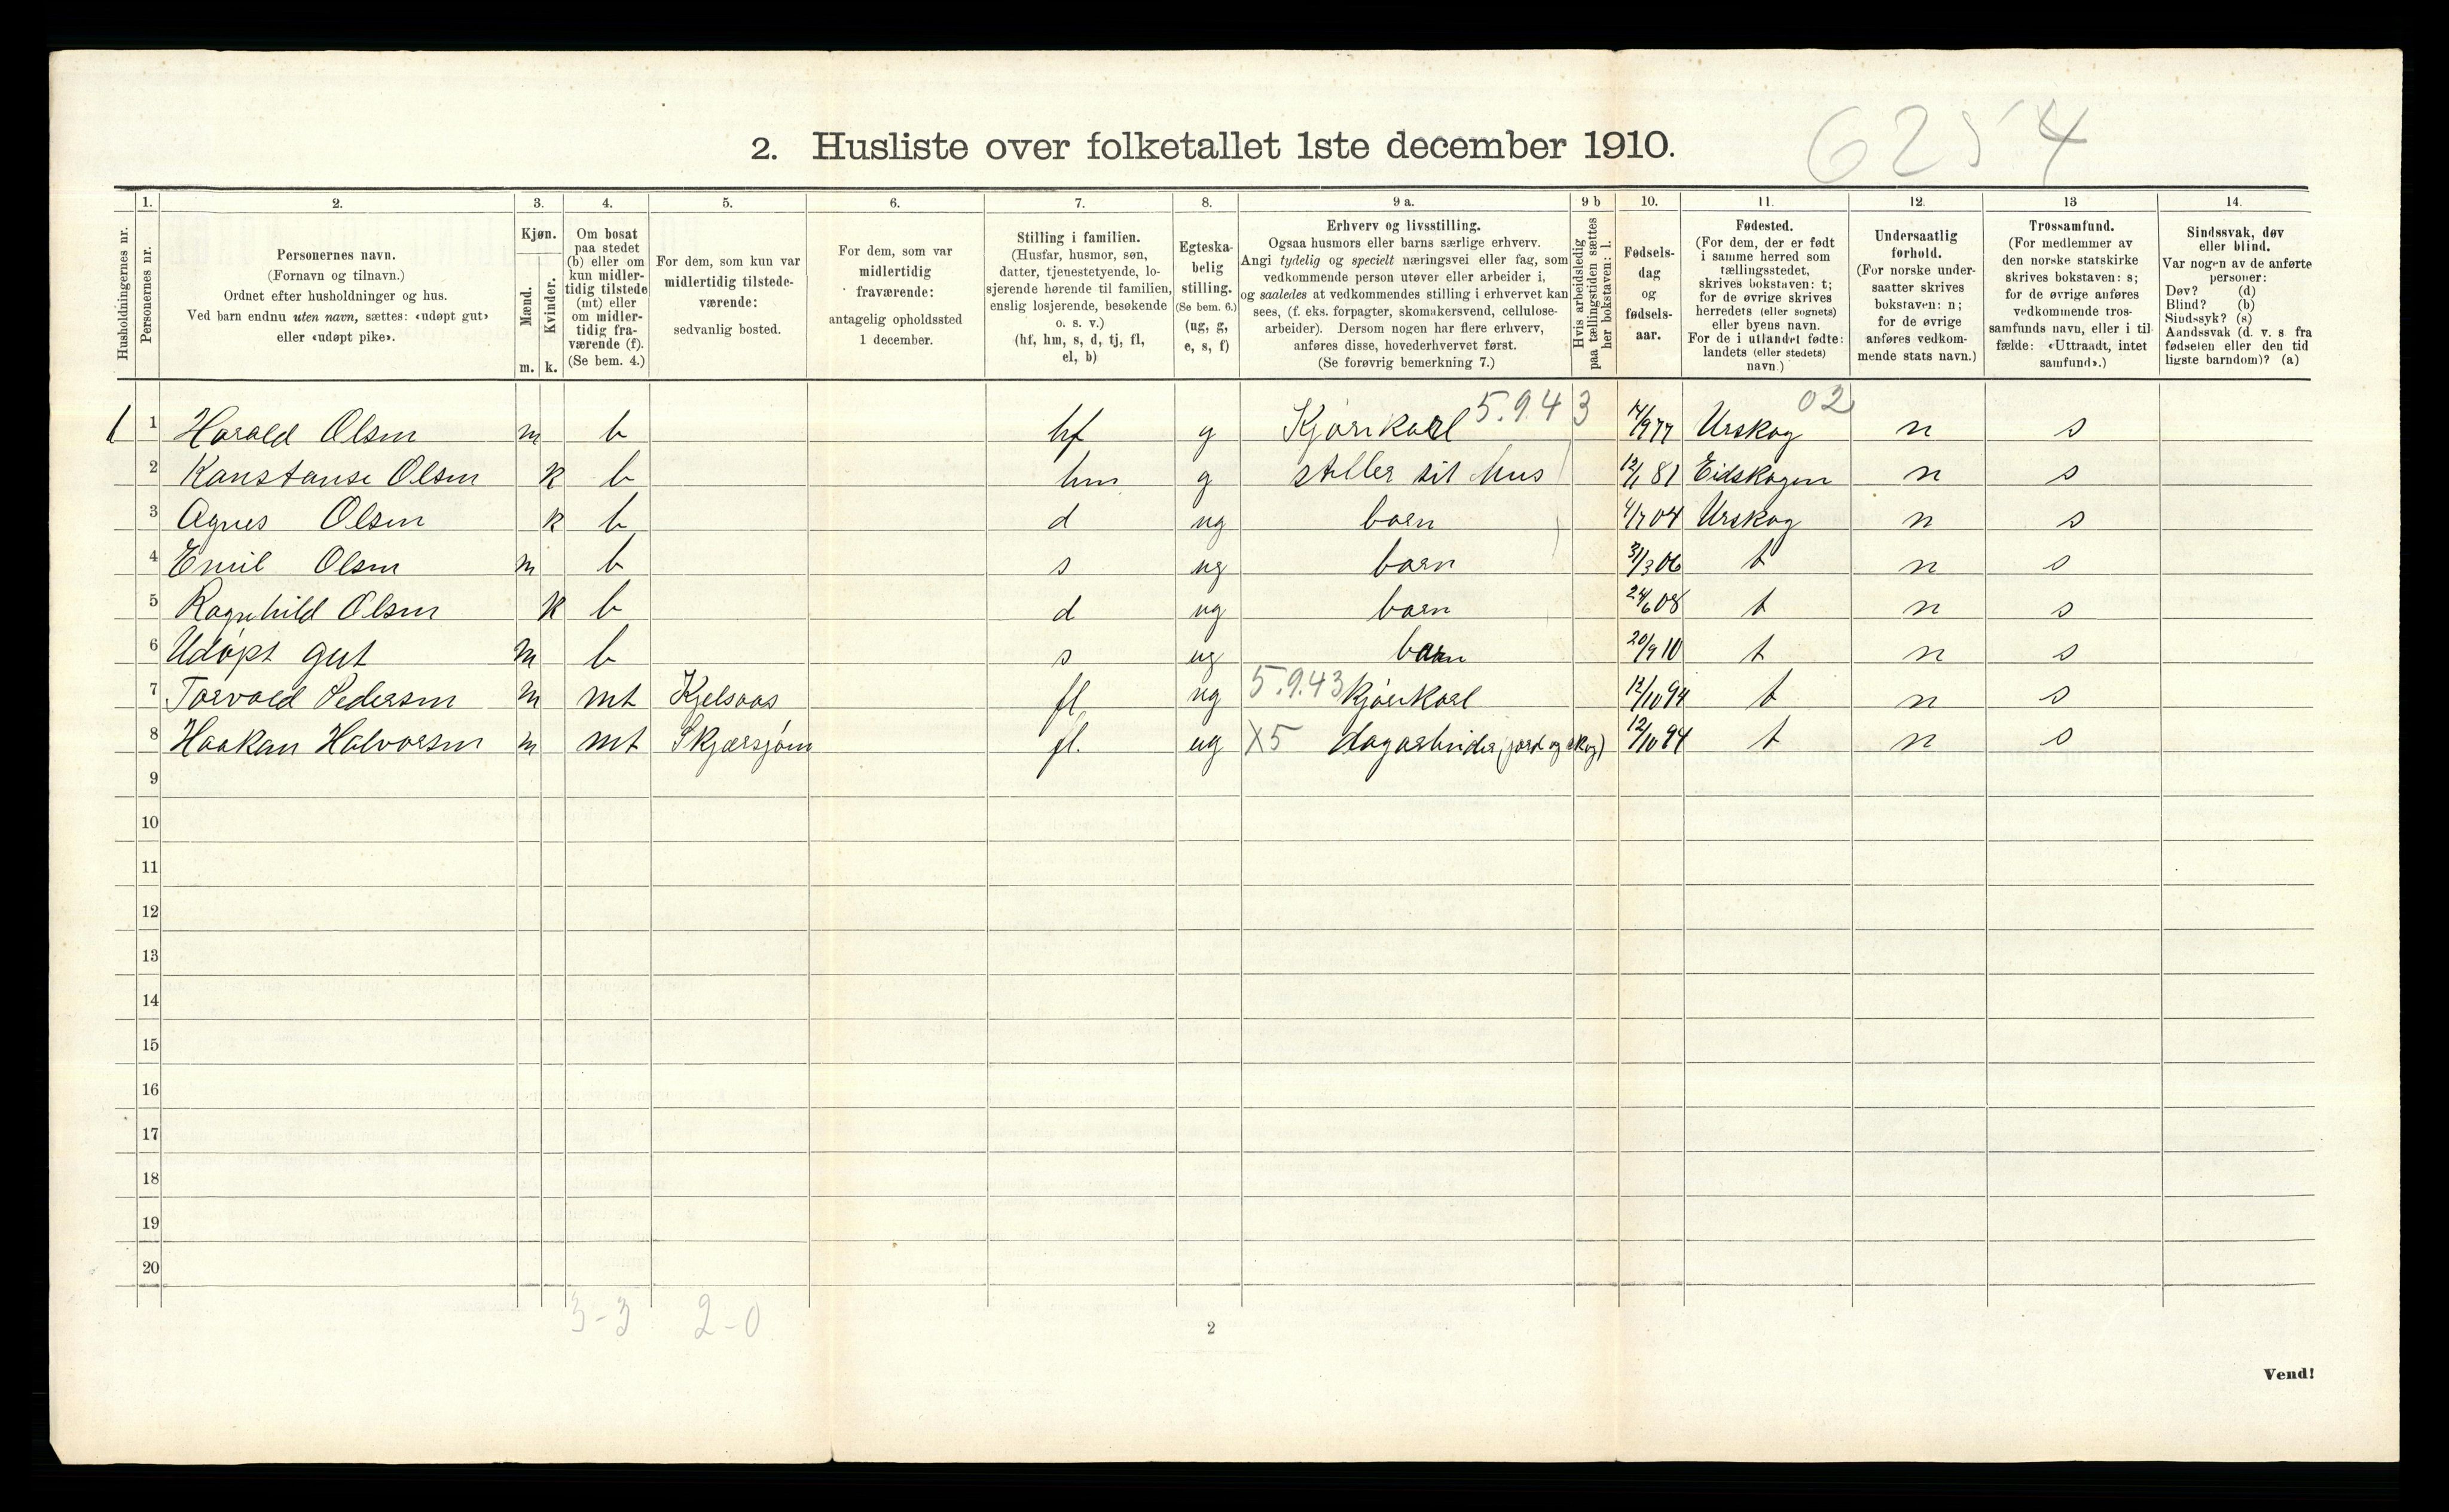 2. Husliste over folketallet 1ste december 1910.
6254
Husholdningernes nr.
1.
Personernes nr.
2.
Personernes navn.
(Fornavn og tilnavn.)
Ordnet efter husholdninger og hus.
Ved barn endnu uten navn, sættes: «udøpt gut»
eller «udøpt pike».
3.
Kjøn.
Mænd.
Kvinder.
m. k.
4.
Om bosat
paa stedet
(b) eller om
kun midler-
tidig tilstede
(mt) eller
om midler-
tidig fra-
værende (f).
(Se bem. 4.)
5.
For dem, som kun var
midlertidig tilstede-
værende:
sedvanlig bosted.
6.
For dem, som var
midlertidig
fraværende:
antagelig opholdssted
1 december.
7.
Stilling i familien.
(Husfar, husmor, søn,
datter, tjenestetyende, lo-
sjerende hørende til familien,
enslig losjerende, besøkende
o. s. v.)
(hf, hm, s, d, tj, fl,
el, b)
8.
Egteska-
belig
stilling.
(Se bem. 6.)
(ug, g,
e, s, f)
9 a.
Erhverv og livsstilling.
Ogsaa husmors eller barns særlige erhverv.
Angi tydelig og specielt næringsvei eller fag, som
vedkommende person utøver eller arbeider i,
og saaledes at vedkommendes stilling i erhvervet kan
sees, (f. eks. forpagter, skomakersvend, cellulose-
arbeider). Dersom nogen har flere erhverv,
anføres disse, hovederhvervet først.
(Se forøvrig bemerkning 7.)
9 b
Hvis arbeidsledig
paa tællingstiden sættes
her bokstaven: l.
10.
Fødsels-
dag
og
fødsels-
aar.
11.
Fødested.
(For dem, der er født
i samme herred som
tællingsstedet,
skrives bokstaven: t;
for de øvrige skrives
herredets (eller sognets)
eller byens navn.
For de i utlandet fødte:
landets (eller stedets)
navn.)
12.
Undersaatlig
forhold.
(For norske under-
saatter skrives
bokstaven: n;
for de øvrige
anføres vedkom-
mende stats navn.)
13
Trossamfund.
(For medlemmer av
den norske statskirke
skrives bokstaven: s;
for de øvrige anføres
vedkommende tros-
samfunds navn, eller i til-
fælde: «Uttraadt, intet
samfund».)
14.
Sindssvak, døv
eller blind.
Var nogen av de anførte
personer:
Døv? (d)
Blind? (b)
Sindssyk? (s)
Aandssvak (d. v. s. fra
fødselen eller den tid-
ligste barndom)? (a)
1 1 Harald Olsen m b hf g Kjørekarl 5.9.43 14/9 77 Urskog 02 n s
2 Konstanse Olsen k b hm g steller sit hus 12/1 81 Eidskogen n s
3 Agnes Olsen k b d ug barn 4/7 04 Urskog n s
4 Emil Olsen m b s ug barn 31/3 06 t n s
5 Ragnhild Olsen k b d ug barn 24/6 08 t n s
6 Udøpt gut m b s ug barn 20/9 10 t n s
7 Torvald Pedersen m mt Kjelsaas fl. ug 5.9.43 kjørekarl 12/10 94 t n s
8 Haakon Halvorsen m mt Skjærsjøen fl. ug X5 dagarbeider (jord og skog) 12/10 94 t n s
9
10
11
12
13
14
15
16
17
18
19
20
3-3 2-0
2
Vend!